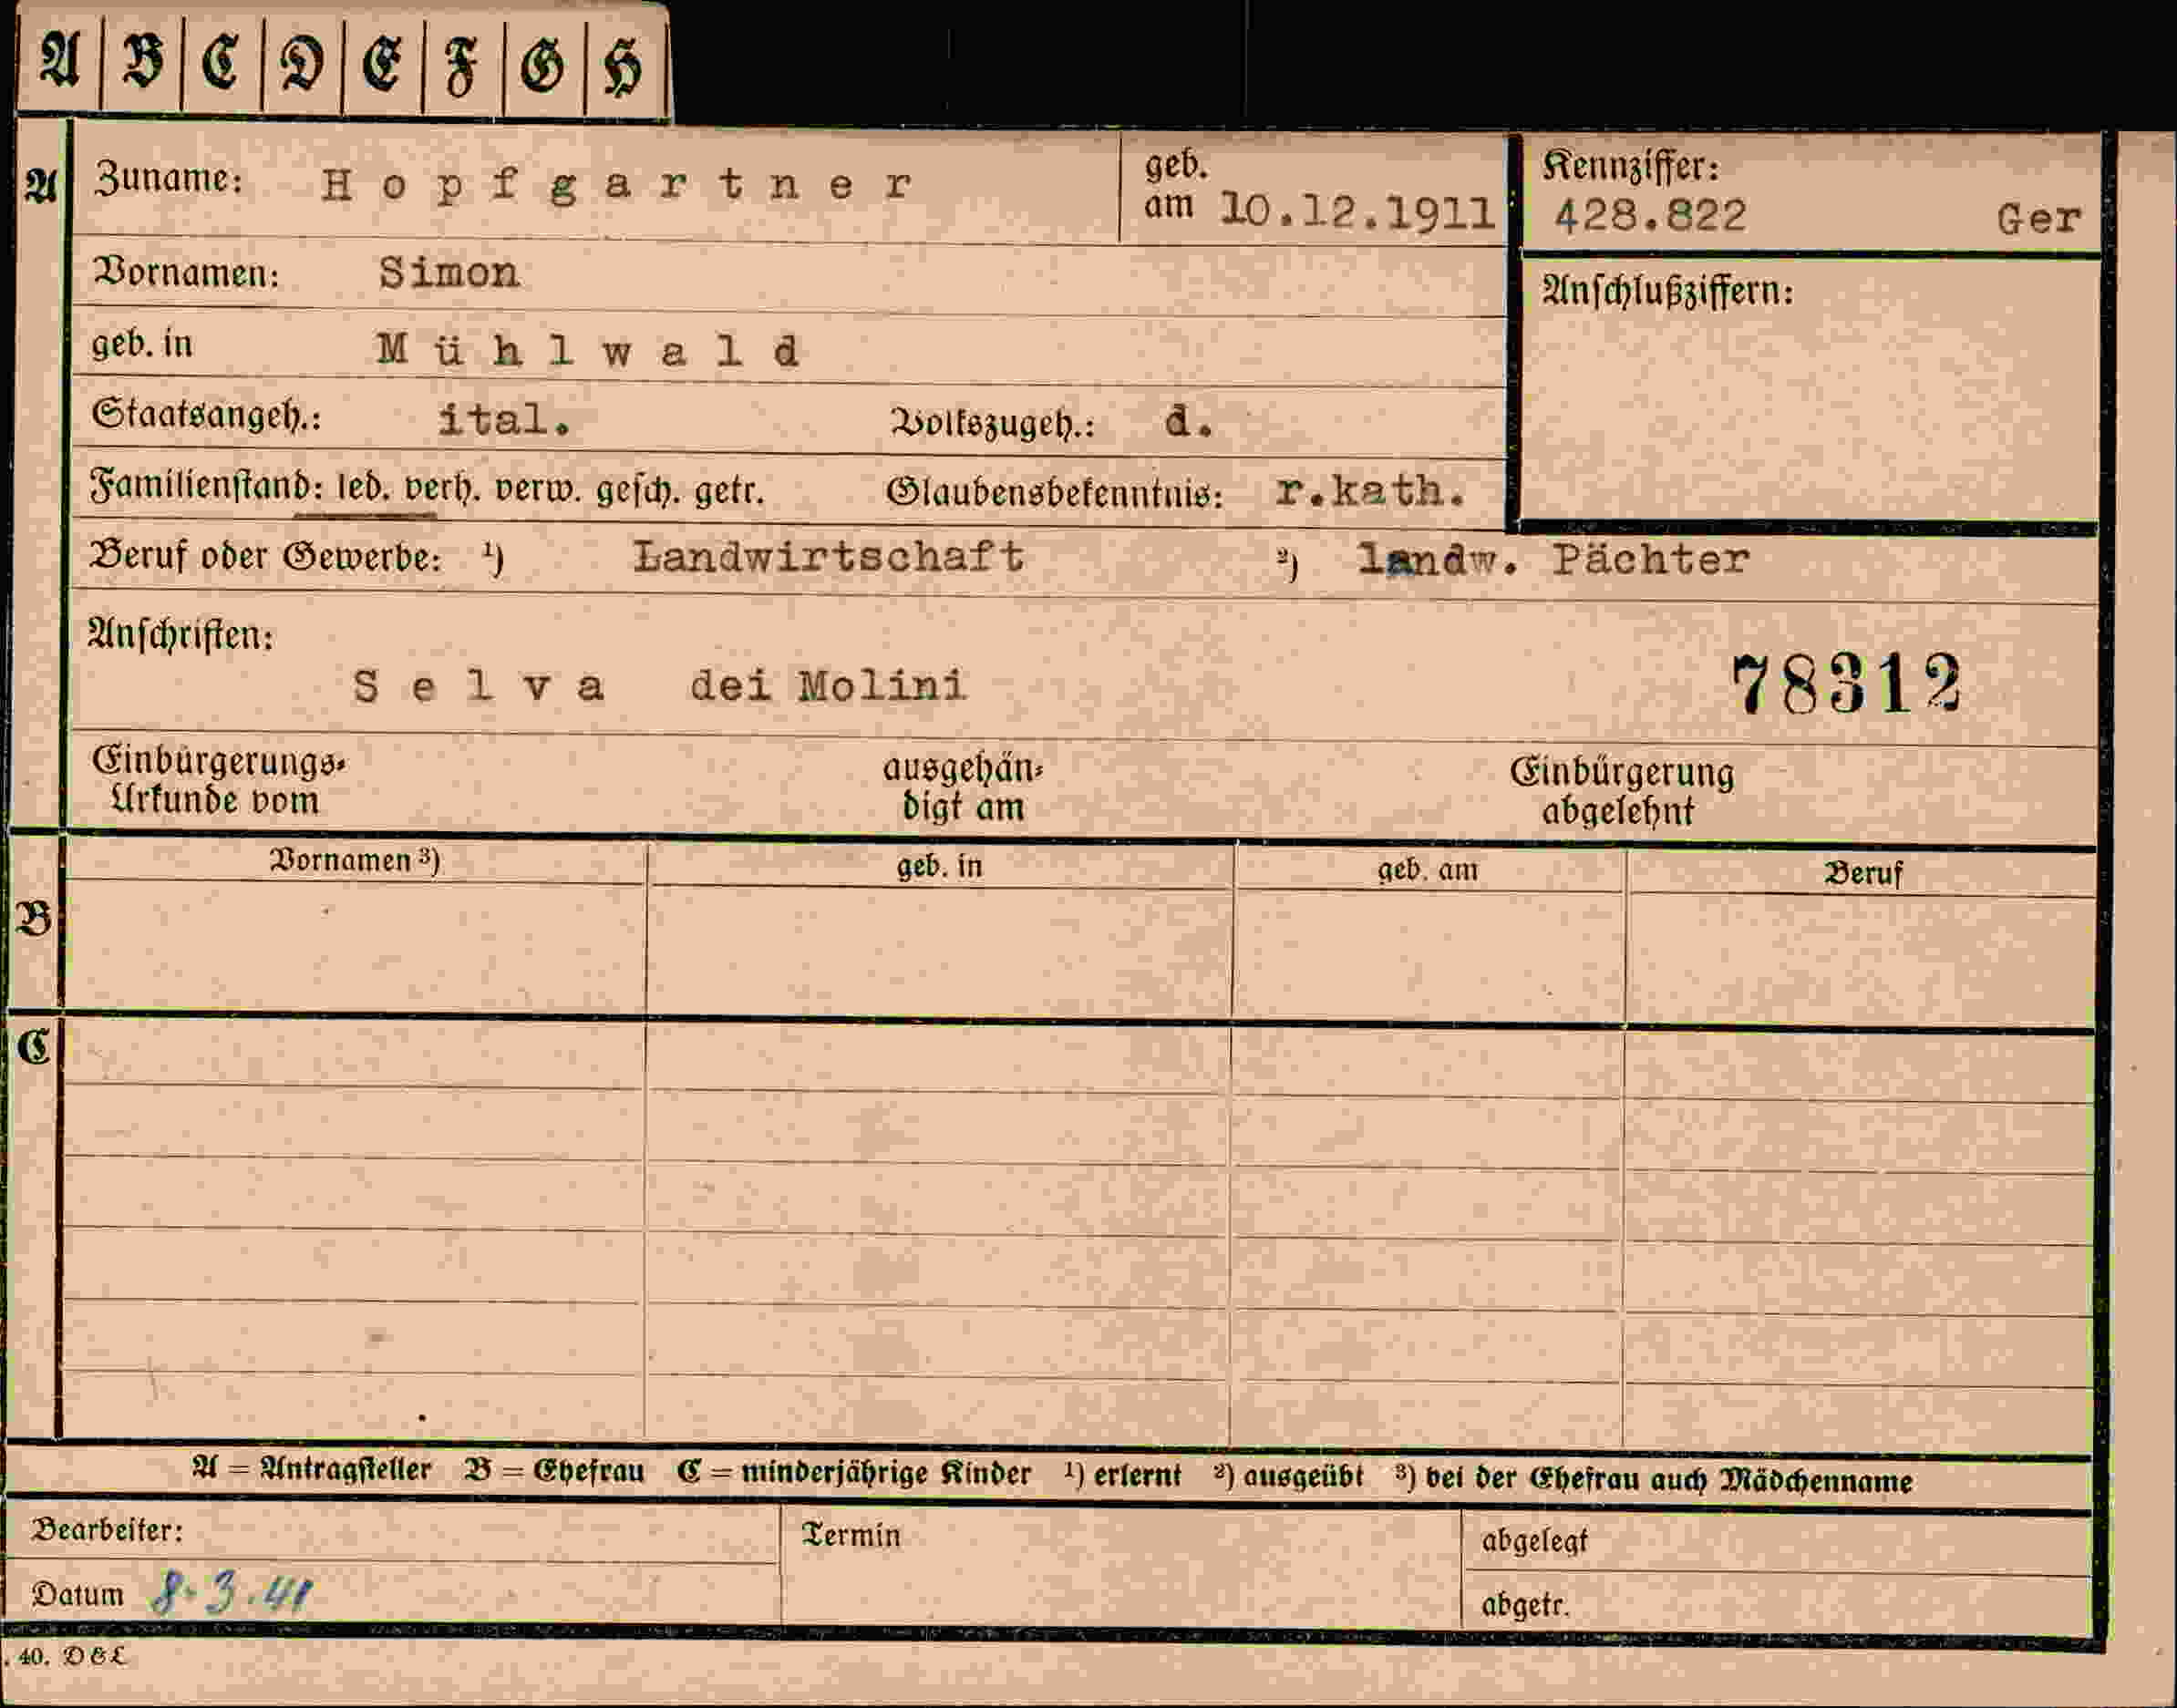 A B C D E F G H
A Zuname: Hopfgartner geb. am 10.12.1911 Kennziffer: 428.822 Ger
Vornamen: Simon Anschlußziffern:
geb. in Mühlwald
Staatsangeh.: ital. Volkszugeh.: d.
Familienstand: led. verh. verw. gesch. getr. Glaubensbekenntnis: r.kath.
Beruf oder Gewerbe: ¹) Landwirtschaft ²) landw. Pächter
Anschriften:
Selva dei Molini 78312
Einbürgerungs- ausgehän- Einbürgerung
Urkunde vom digt am abgelehnt
Vornamen ³) geb. in geb. am Beruf
B
C
A = Antragsteller B = Ehefrau C = minderjährige Kinder ¹) erlernt ²) ausgeübt ³) bei der Ehefrau auch Mädchenname
Bearbeiter: Termin abgelegt
Datum 8.3.41 abgetr.
. 40.